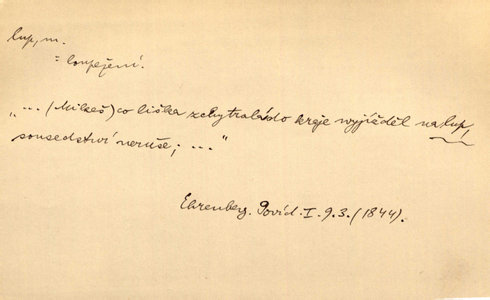 lup, m.
= loupežení.
„... (Mikeš) co liška zchytralá do kraje vyjížděl na lup,
sousedství neruše; ..."
Ehrenberg. Povíd. I. 9. 3. (1844).